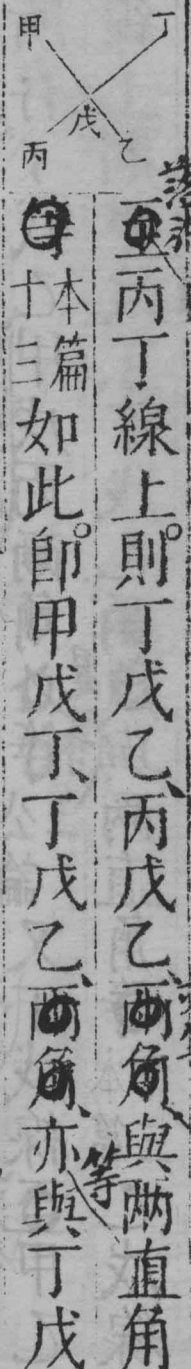 甲 丁
戊
丙 乙
至丙丁線上則丁戊乙、丙戊乙、兩角、與兩直角
等本篇十三如此即甲戊丁、丁戊乙、兩角、亦與丁戊
等